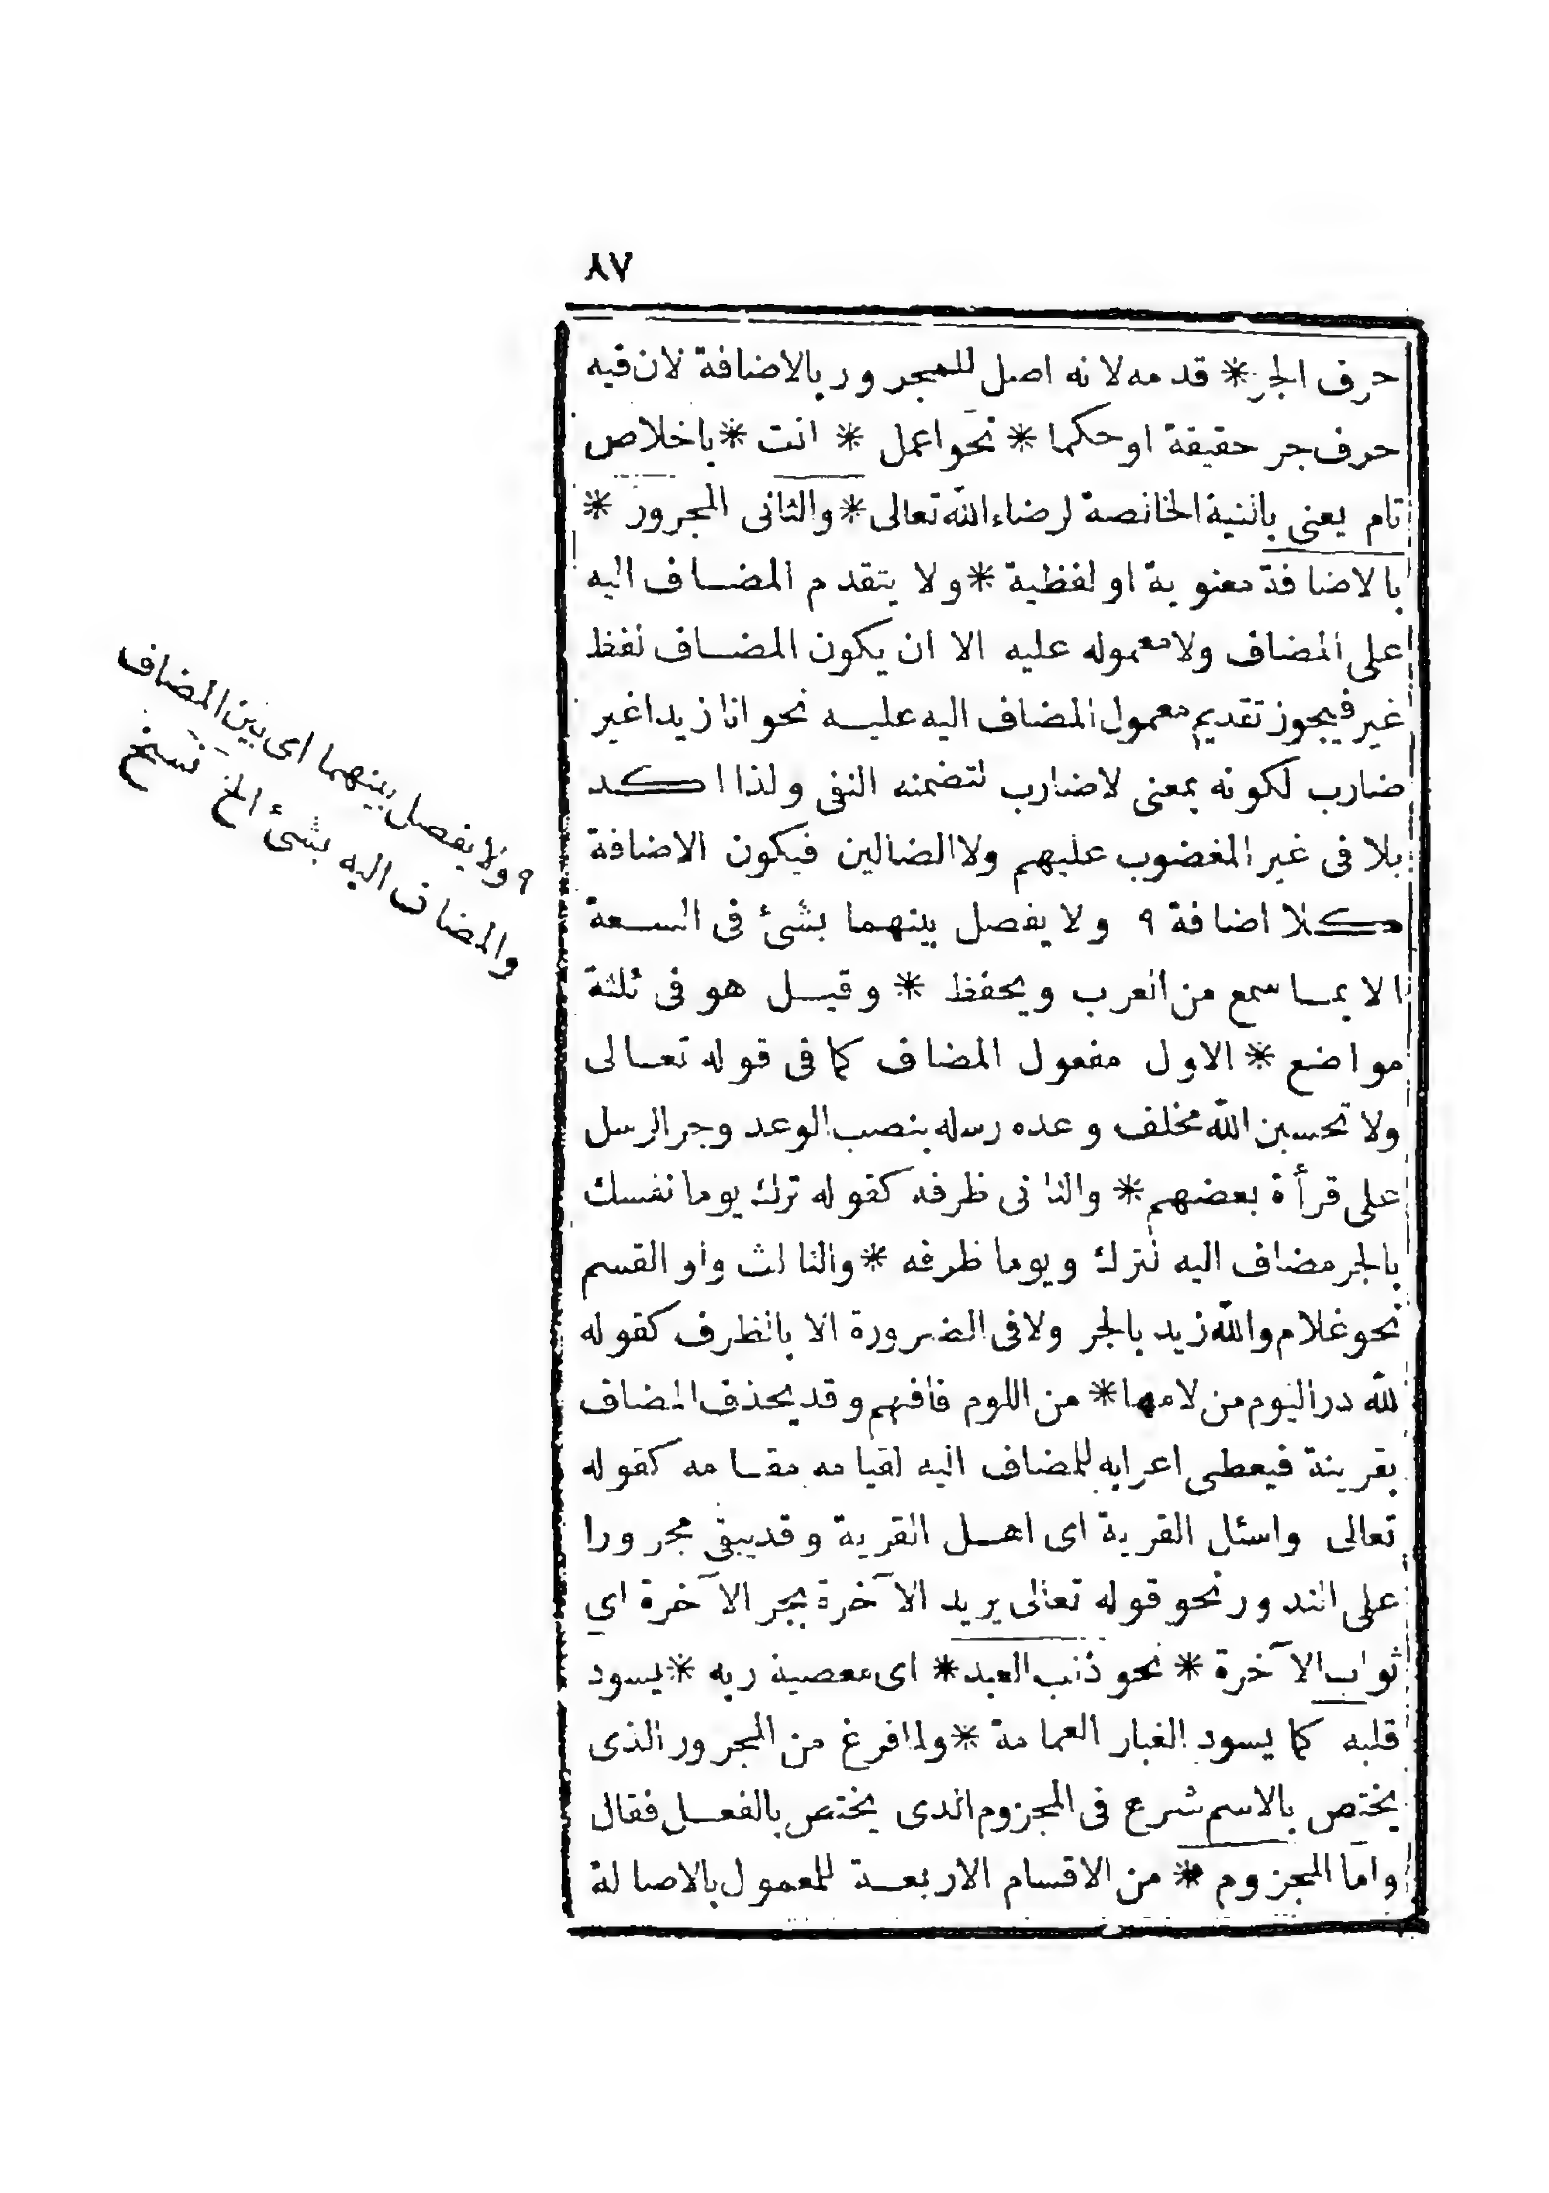 ٨٧
حرف الجر * قدمه لانه اصل للمجرور بالاضافة لان فيه
حرف جر حقيقة او حكما * نحو اعمل * انت * باخلاص
تام يعنى بالنية الخالصة لرضاء الله تعالى * والثانى المجرور *
بالاضافة معنوية او لفظية * ولا يتقدم المضاف اليه
على المضاف ولا معموله عليه الا ان يكون المضاف لفظ
غير فيجوز تقديم معمول المضاف اليه عليه نحو انا زيدا غير
ضارب لكونه بمعنى لا ضارب لتضمنه النفى ولذا اكد
بلا فى غير المغضوب عليهم ولا الضالين فيكون الاضافة
كلا اضافة ٩ ولا يفصل بينهما بشئ فى السعة
الا بما سمع من العرب ويحفظ * وقيل هو فى ثلثة
مواضع * الاول مفعول المضاف كما فى قوله تعالى
ولا تحسبن الله مخلف وعده رسله بنصب الوعد وجر الرسل
على قرأة بعضهم * والثانى ظرفه كقوله ترك يوما نفسك
بالجر مضاف اليه لترك ويوما ظرفه * والثالث واو القسم
نحو غلام والله زيد بالجر ولا فى الضرورة الا بالظرف كقوله
لله در اليوم من لامها * من اللوم فافهم وقد يحذف المضاف
بقرينة فيعطى اعرابه للمضاف اليه لقيامه مقامه كقوله
تعالى واسئل القرية اى اهل القرية وقد يبقى مجرورا
على الندور نحو قوله تعالى يريد الآخرة بجر الآخرة اي
ثواب الآخرة * نحو ذنب العبد * اى معصية ربه * يسود
قلبه كما يسود الغبار العمامة * ولما فرغ من المجرور الذى
يختص بالاسم شرع فى المجزوم الذى يختص بالفعل فقال
واما المجزوم * من الاقسام الاربعة للمعمول بالاصالة
٩ ولا يفصل بينهما اى بين المضاف
والمضاف اليه بشئ الخ نسخ